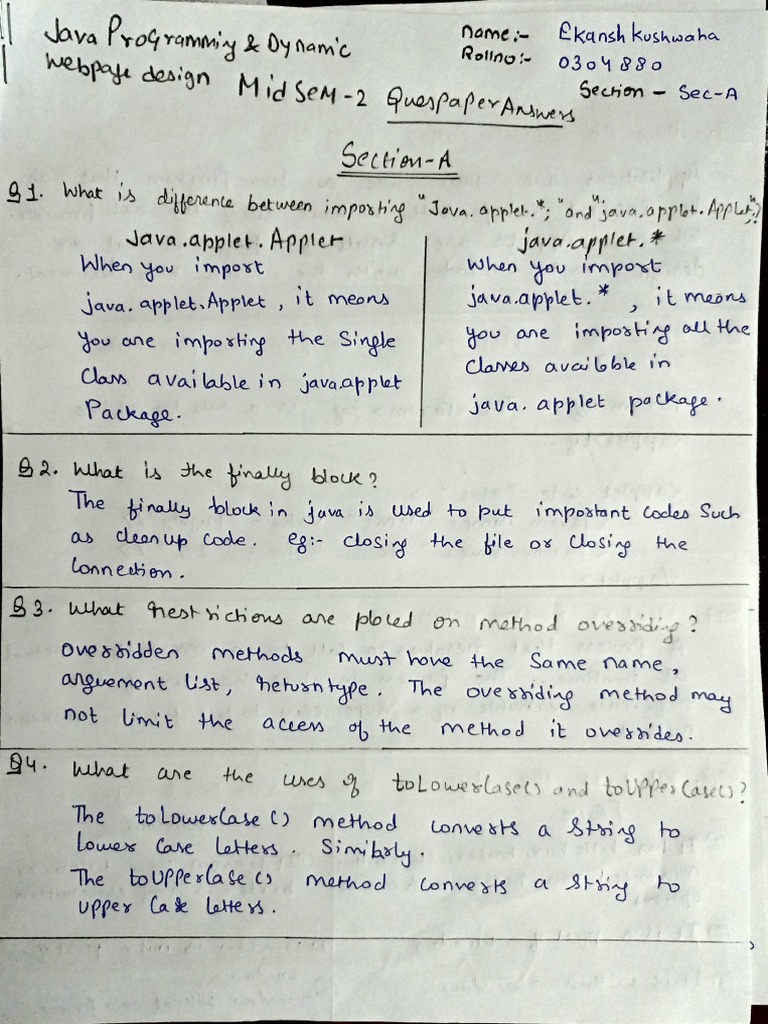 Java Programming & Dynamic
webpage design MidSem-2 Quespaper Answers
Name:- Ekansh Kushwaha
Rollno:- 0304880
Section - Sec-A
Section-A
Q1. What is difference between importing "Java.applet.*; "and" java.applet.Applet;"?
Java.applet.Applet
When you import
java.applet.Applet, it means
you are importing the Single
Class available in java.applet
Package.
java.applet.*
When you import
java.applet.*, it means
you are importing all the
Classes available in
java.applet package.
Q2. What is the finally block?
The finally block in java is used to put important codes Such
as clean up code. eg:- closing the file or closing the
Connection.
Q3. What restrictions are placed on method overriding?
Overridden methods must have the Same name,
arguement list, return type. The overriding method may
not limit the access of the method it overrides.
Q4. What are the uses of toLowerCase() and toUpperCase()?
The toLowerCase() method converts a String to
Lower Case Letters. Similarly.
The toUpperCase() method converts a String to
upper Case letters.